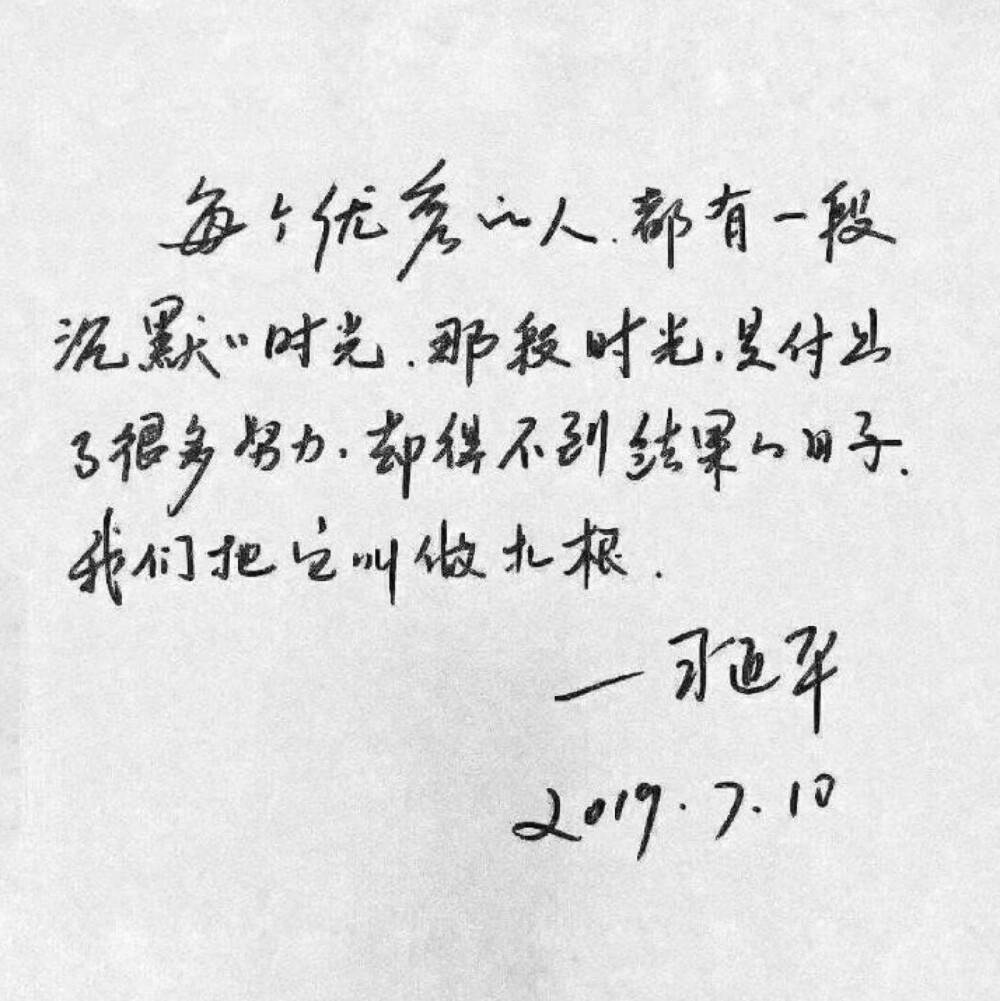 每个优秀的人.都有一段
沉默的时光.那段时光.是付出
了很多努力.却得不到结果的日子.
我们把它叫做扎根.
—习近平
2019.7.10